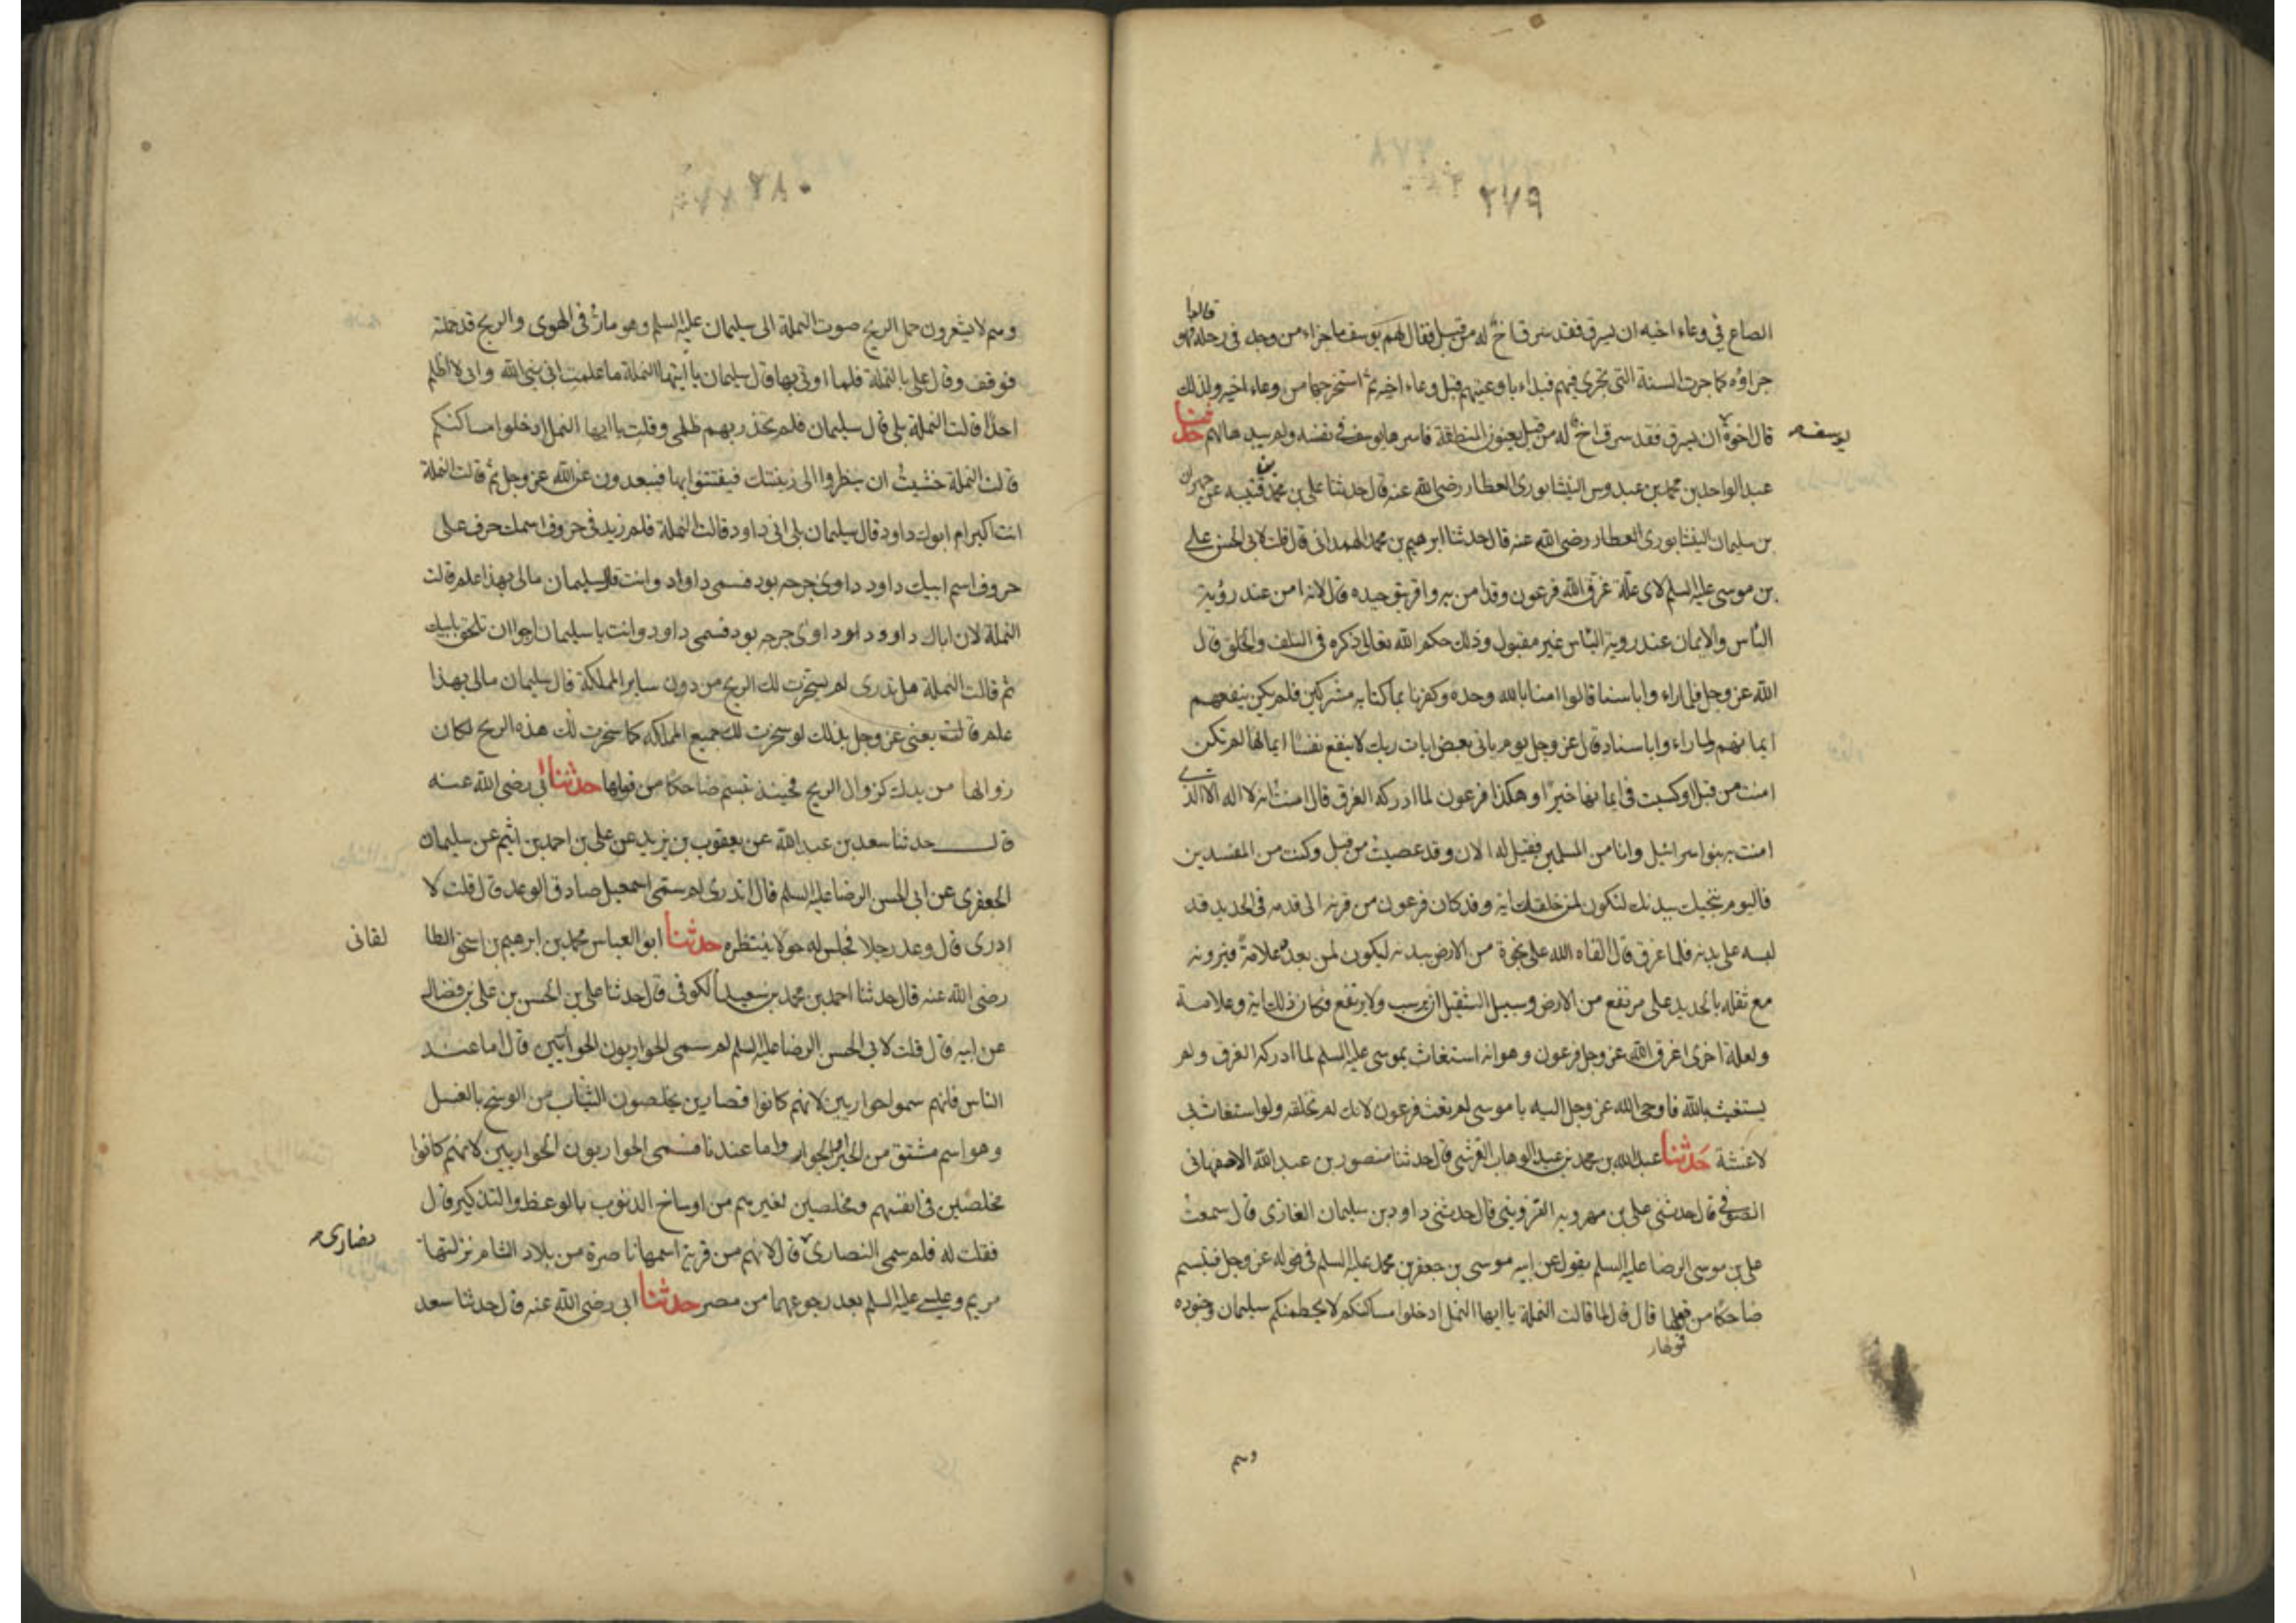 ٢٧٩
قالوا
الصاع في وعاء اخيه ان يسرق فقد سرق اخ له من قبل فقال لهم يوسف ما جزاء من وجد في رحله فهو
جزاؤه كما جرت السنة التي تجري فيهم فبداء باوعيتهم قبل وعاء اخيه ثم استخرجها من وعاء اخيه ولذلك
قال اخوة ان يسرق فقد سرق اخ له من قبل يعنون المنطقة فاسرها يوسف في نفسه ولم يبدها لهم حدثنا
يوسف
عبد الواحد بن محمد بن عبدوس النيشابوري العطار رضي الله عنه قال حدثنا علي بن محمد بن قتيبه عن حمدان
بن سليمان النيشابوري العطار رضي الله عنه قال حدثنا ابرهيم بن محمد الهمداني قال قلت لابي الحسن علي
بن موسى عليه السلم لاي علة غرق الله فرعون وقد امن به واقر بتوحيده قال لانه امن عند رؤية
الباس والايمان عند روية الباس غير مقبول وذلك حكم الله تعالى ذكره في السلف والخلق قال
الله عز وجل فلما راء وا باسنا قالوا امنا بالله وحده وكفرنا بما كنا به مشركين فلم يكن ينفعهم
ايمانهم لما راء وا باسنا وقال عز وجل يوم ياتي بعض ايات ربك لا ينفع نفسا ايمانها لم تكن
امنت من قبل او كسبت في ايمانها خيرا وهكذا فرعون لما ادركه الغرق قال امنت انه لا اله الا الذي
امنت به بنوا سرائيل وانا من المسلمين فقيل له الان وقد عصيت من قبل وكنت من المفسدين
فاليوم ننجيك ببدنك لتكون لمن خلفك اية وقد كان فرعون من قرنه الى قدمه في الحديد قد
لبسه على بدنه فلما غرق قال القاه الله على نجوة من الارض ببدنه ليكون لمن بعده علامة فيرونه
مع ثقله بالحديد على مرتفع من الارض وسبيل الثقيل ان يرسب ولا يرتفع فكان ذلك اية وعلامة
ولعلة اخرى اغرق الله عز وجل فرعون وهو انه استغاث بموسى عليه السلم لما ادركه الغرق ولم
يستغيث بالله فاوحى الله عز وجل اليه يا موسى لم تغث فرعون لانك لم تخلقه ولو استغاث بي
لاغثته حدثنا عبد الله بن محمد بن عبد الوهاب القرشي قال حدثنا منصور بن عبد الله الاصفهاني
الصوفي قال حدثني علي بن مهرويه القزويني قال حدثني داود بن سليمان الغازي قال سمعت
علي بن موسى الرضا عليه السلم يقول عن ابيه موسى بن جعفر بن محمد عليه السلم في قوله عز وجل فتبسم
ضاحكا من قولها قال قال لما قالت النملة يا ايها النمل ادخلوا مساكنكم لا يحطمنكم سليمان وجنوده
قولها
وهم
٢٨٠
وهم لا يشعرون حمل الريح صوت النملة الى سليمان عليه السلم وهو مار في الهوى والريح قد حملته
فوقف وقال علي بالنملة فلما اوتي بها قال سليمان يا ايتها النملة ما علمت اني نبي الله واني لا اظلم
احدا قالت النملة بلى قال سليمان فلم تحذريهم ظلمي وقلت يا ايها النمل ادخلوا مساكنكم
قالت النملة خشيت ان ينظروا الى زينتك فيفتتنوا بها فيبعدون عن الله عز وجل ثم قالت النملة
انت اكبر ام ابوك داود قال سليمان بلى ابي داود قالت النملة فلم زيد في حروف اسمك حرف على
حروف اسم ابيك داود داوى جرحه بود فسمي داواد وانت قال سليمان مالي بهذا علم قالت
النملة لان اباك داوود داوى جرحه بود فسمي داود وانت يا سليمان ارجوا ان تلحق بابيك
ثم قالت النملة هل تدري لم سخرت لك الريح من دون ساير المملكة قال سليمان مالي بهذا
علم قالت يعني عز وجل بذلك لو سخرت لك جميع المملكه كما سخرت لك هذه الريح لكان
زوالها من يدك كزوال الريح فحينئذ تبسم ضاحكا من قولها حدثنا ابي رضي الله عنه
قال حدثنا سعد بن عبد الله عن يعقوب بن يزيد عن علي بن احمد بن اشيم عن سليمان
الجعفري عن ابي الحسن الرضا عليه السلم قال اتدري لم سمي اسمعيل صادق الوعد قال قلت لا
ادري قال وعد رجلا فجلس له حولا ينتظره حدثنا ابو العباس محمد بن ابرهيم بن اسحق الطا
لقاني
رضي الله عنه قال حدثنا احمد بن محمد بن سعيد الكوفي قال حدثنا علي بن الحسن بن علي بن فضال
عن ابيه قال قلت لابي الحسن الرضا عليه السلم لم سمي الحواريون الحواريين قال اما عند
الناس فانهم سموا حواريين لانهم كانوا قصارين يخلصون الثياب من الوسخ بالغسل
وهو اسم مشتق من الخبز الحوار واما عندنا فسمي الحواريون الحواريين لانهم كانوا
مخلصين في انفسهم ومخلصين لغيرهم من اوساخ الذنوب بالوعظ والتذكير قال
فقلت له فلم سمي النصارى قال لانهم من قرية اسمها ناصرة من بلاد الشام نزلتها
نصارى
مريم وعيسى عليه السلم بعد رجوعهما من مصر حدثنا ابي رضي الله عنه قال حدثنا سعد